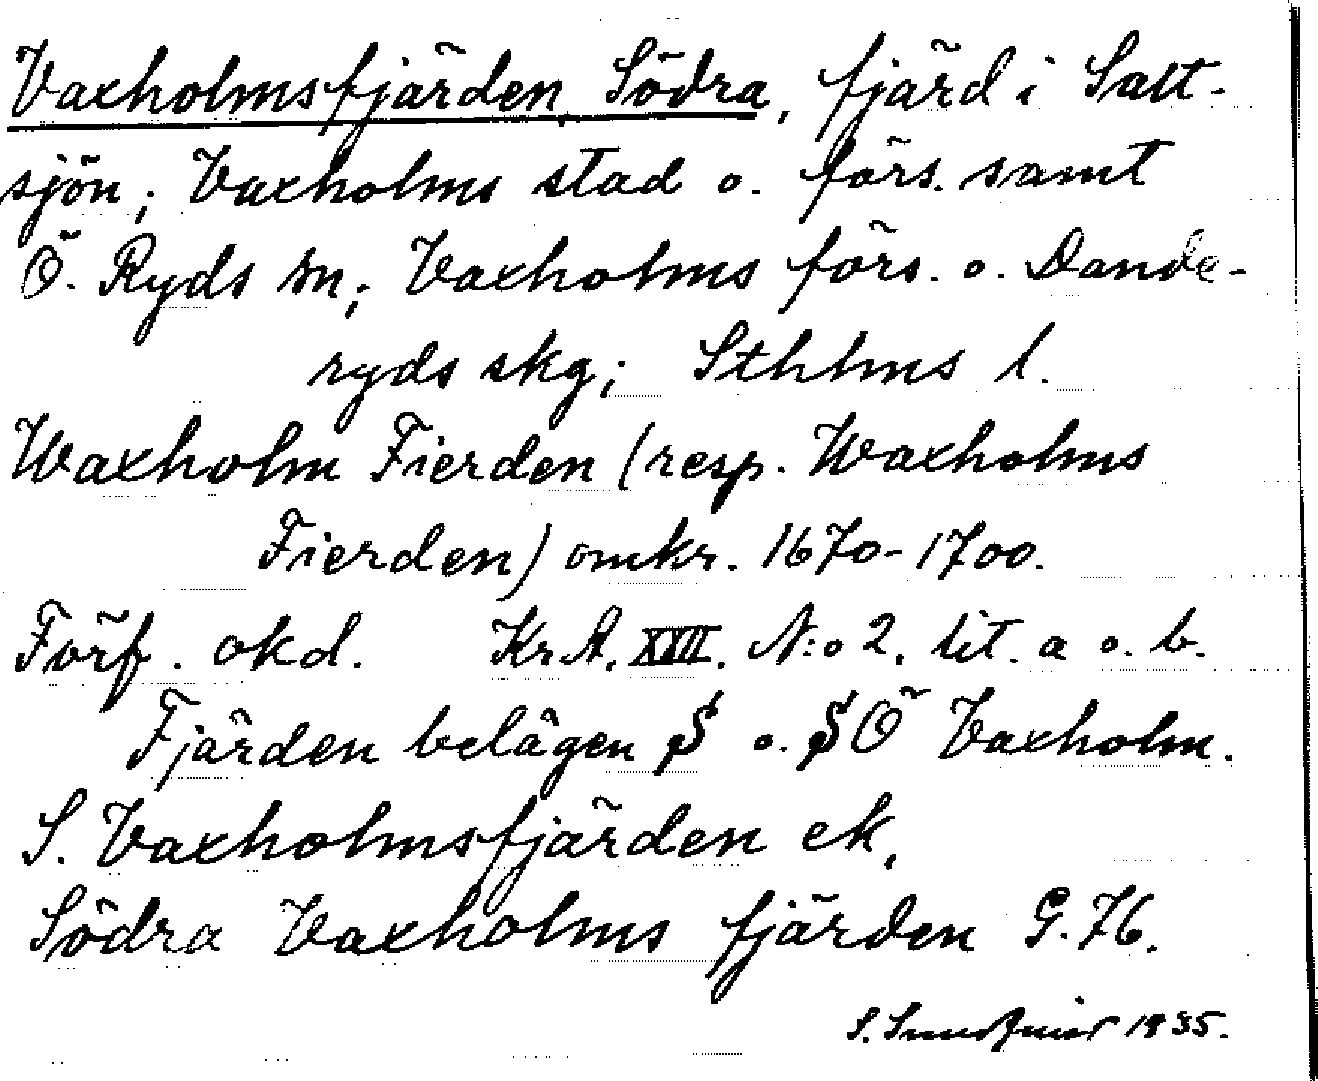 Vaxholmsfjärden, Södra, fjärd i Salt-
sjön; Vaxholms stad o. förs. samt
Ö. Ryds sn; Vaxholms förs. o. Dande-
ryds skg; Sthlms l.
Waxholm Fierden (resp. Waxholms
Fierden) omkr. 1670-1700.
Förf. okd. Kr.A. XVII. N:o 2. lit. a o. b.
Fjärden belägen S o. SÖ Vaxholm.
S. Vaxholmsfjärden ek,
Södra Vaxholms fjärden G.K.
S. 1935.